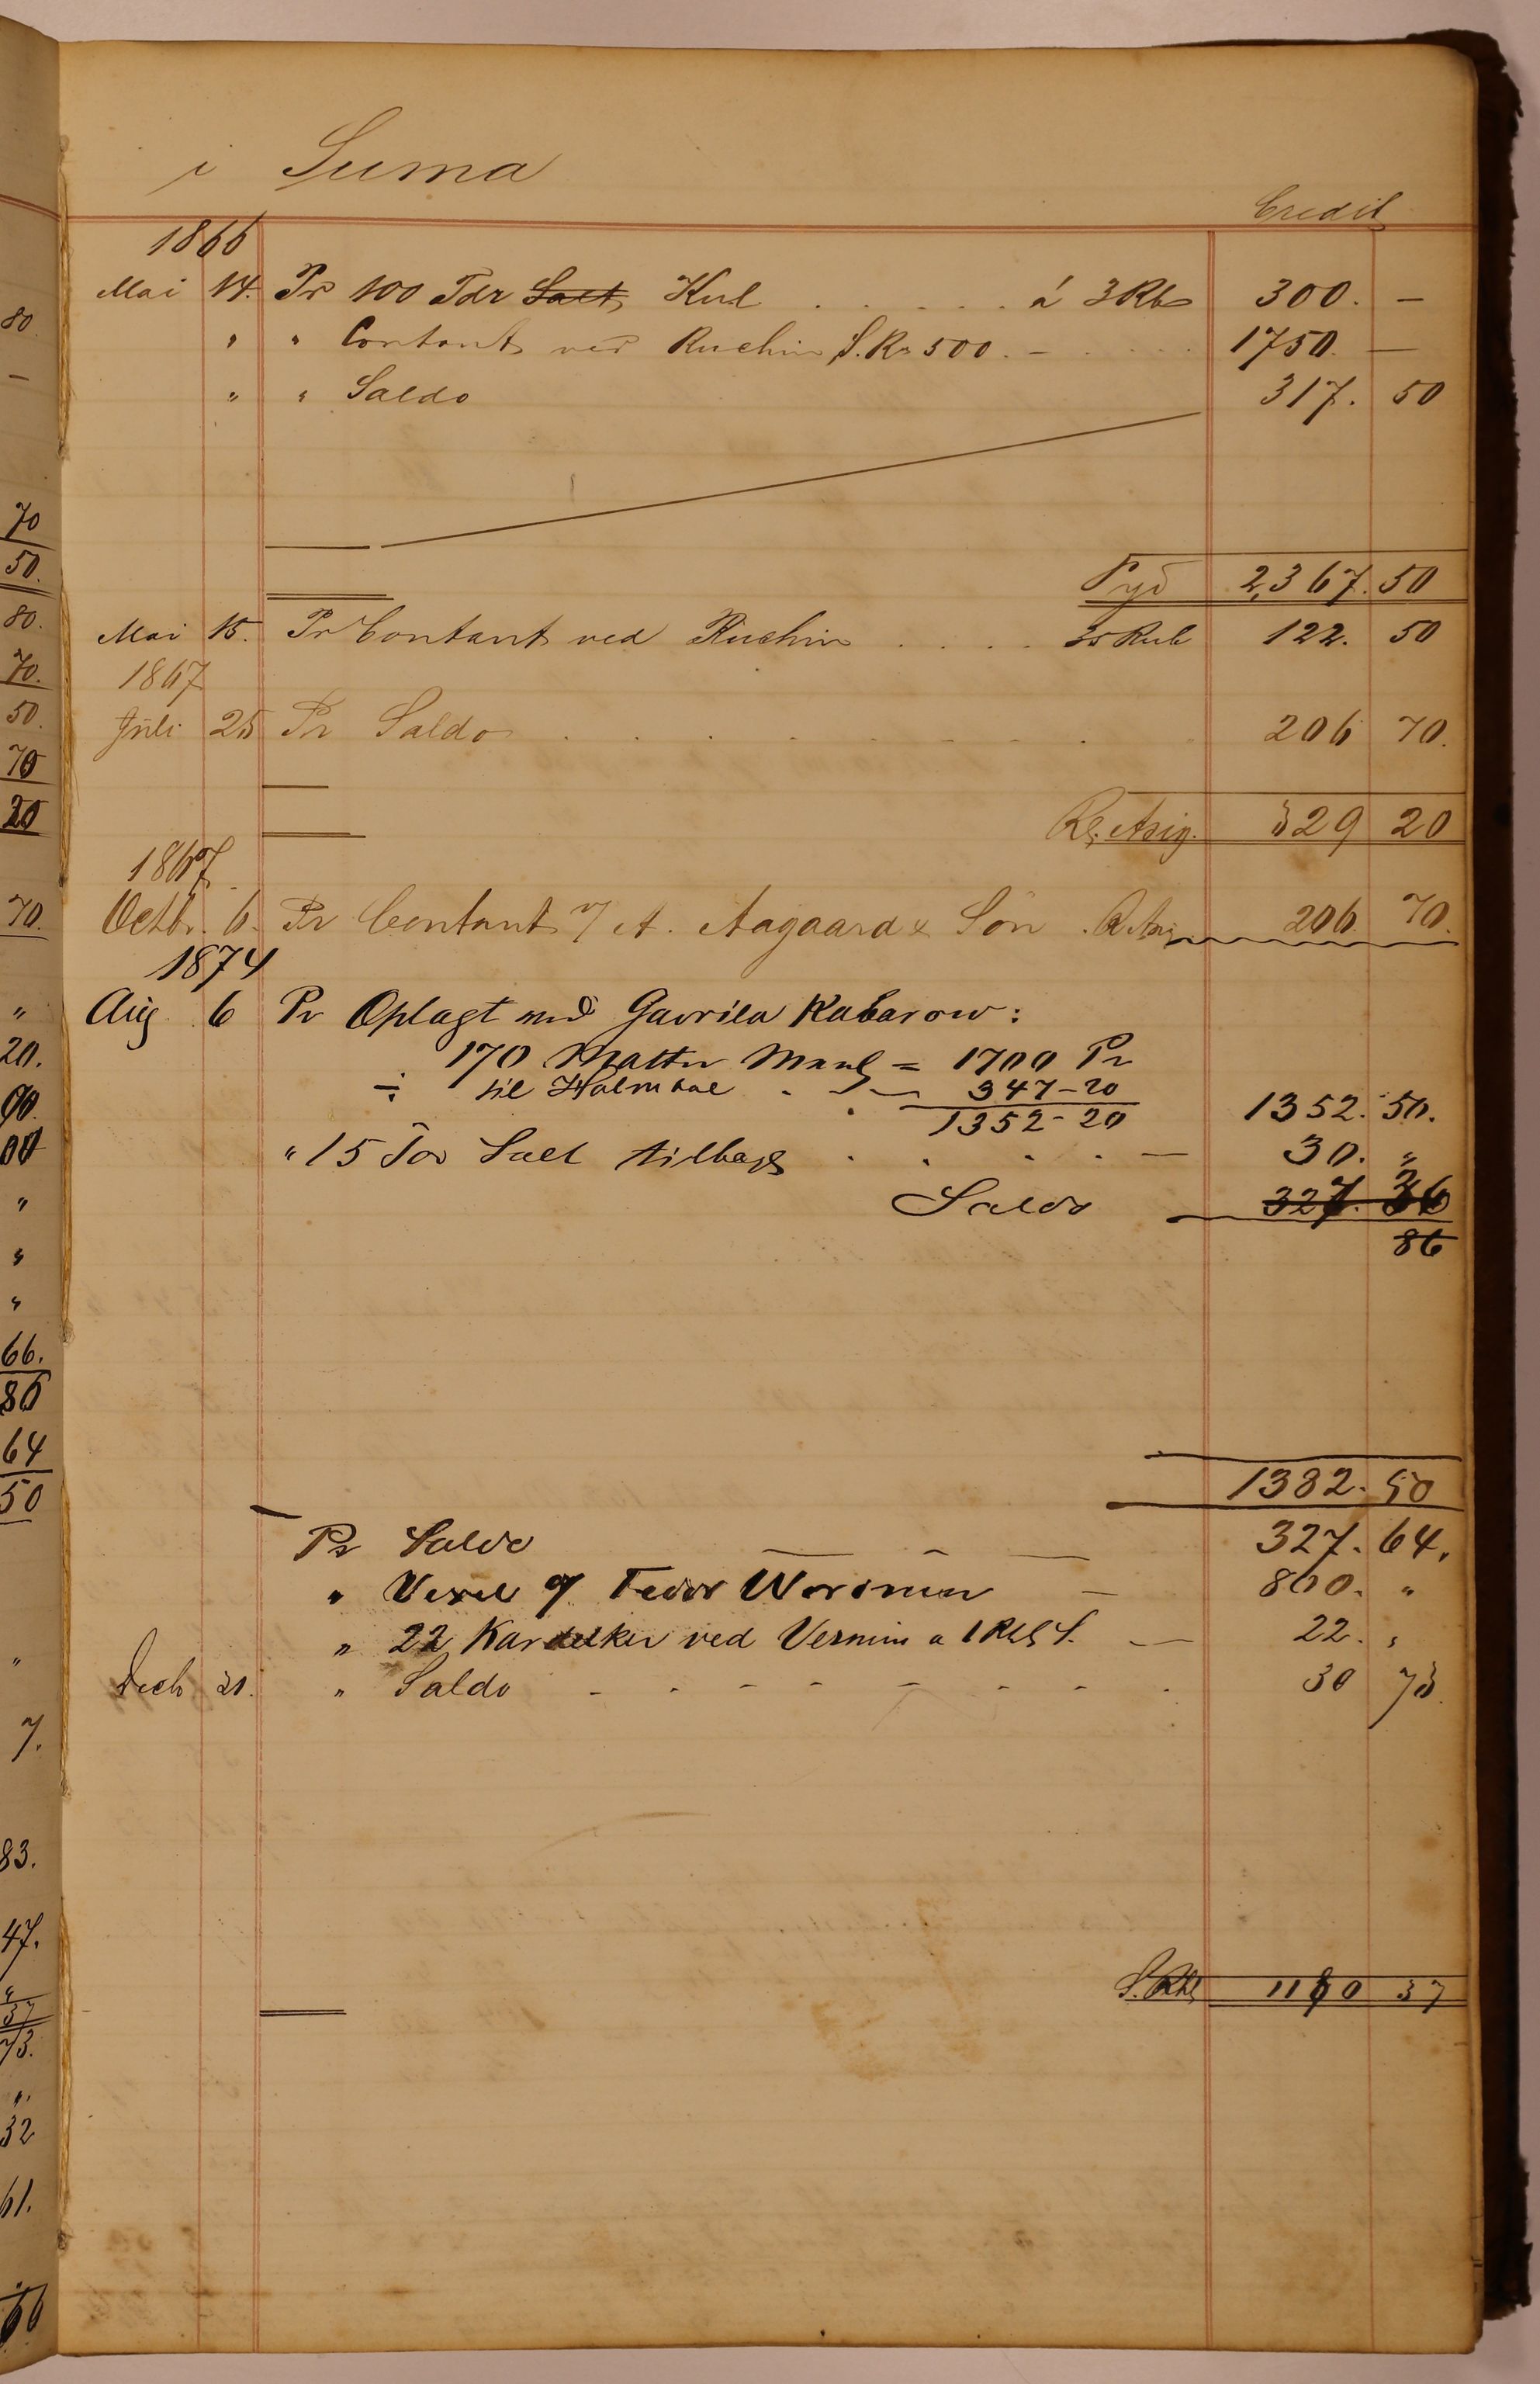 i Suma
Credit
1866
Mai 14. Pr 100 Tdr Salt Kul . . . . . á 3 Rb 300. —
" " Contant ved Ruchin S. Ro 500. — . . . . 1750. —
" " Saldo 317. 50
2,367. 50
Mai 15. Pr Contant ved Ruchin . . . . 35 Rub 122. 50
1867
Juli 25 Pr Saldo . . . . . . . . 206 70.
Rb. Asig. 329 20
1867
Octbr. 6. Pr Contant A. Aagaard & Sön . 206. 70.
1874
Aug 6 Pr Oplagt med Gavrila Kabarow:
170 Matter = 1700 P
÷ til 347-20
1352-20 1352. 50.
" 15 Tdr Salt tilbage . . . . — 30. "
Saldo 327. 36
86
1382. 50
Pr Saldo — — — 327. 64.
" Vexel Fedor — 800. "
" 22 ved Vermin a 1 Rbl S. — 22. "
Decb 31. " Saldo - - - - - - - - . 30 73.
S. Rbl 1180 37
80
—
70
50.
80.
70.
50.
70
20
70.
"
20.
90
00
"
"
"
66.
86
64
50
"
7.
83.
47.
"
37
73.
".
32
61.
60